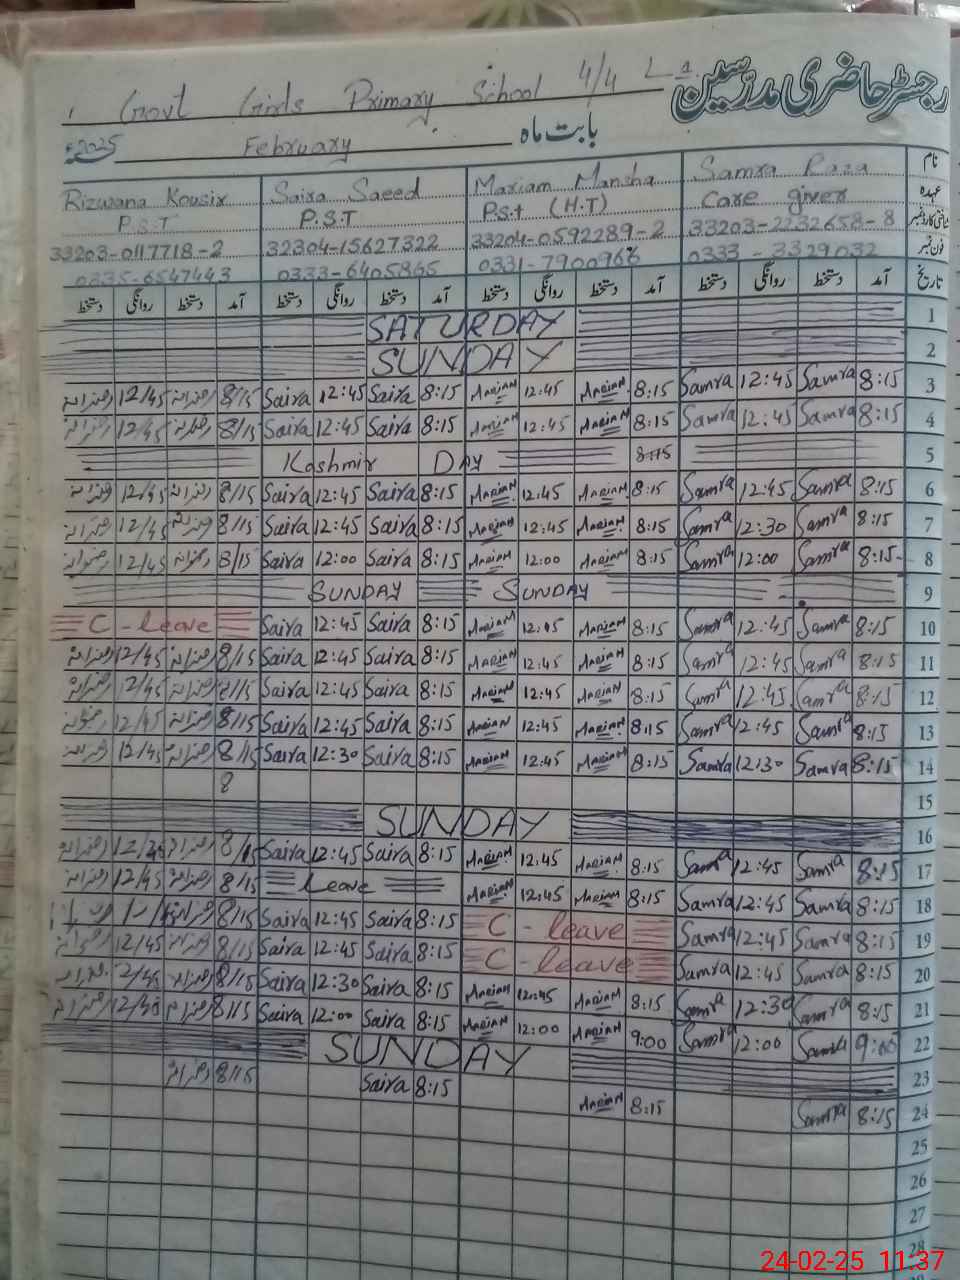 رجسٹر حاضری مدرسین
Govt Girls Primary School 4/4 L
بابت ماہ February 2025ء
نام Samra Raza Mariam Mansha Saira Saeed Rizwana Kousir
عہدہ Care giver P.S.t (H.T) P.S.T P.S.T
شناختی کارڈ نمبر 33203-2232658-8 33204-0592289-2 32304-15627322 33203-0117718-2
فون نمبر 0333-3329032 0331-7900966 0333-6405865 0335-6547443
تاریخ آمد دستخط روانگی دستخط آمد دستخط روانگی دستخط آمد دستخط روانگی دستخط آمد دستخط روانگی دستخط
SATURDAY 1
SUNDAY 2
12/45 8/15 Saira 12:45 Saira 8:15 MARIAM 12:45 MARIAM 8:15 Samra 12:45 Samra 8:15 3
12/45 8/15 Saira 12:45 Saira 8:15 MARIAM 12:45 MARIAM 8:15 Samra 12:45 Samra 8:15 4
Kashmir DAY 8:15 5
12/45 8/15 Saira 12:45 Saira 8:15 MARIAM 12:45 MARIAM 8:15 Samra 12:45 Samra 8:15 6
12/45 8/15 Saira 12:45 Saira 8:15 MARIAM 12:45 MARIAM 8:15 Samra 12:30 Samra 8:15 7
12/45 8/15 Saira 12:00 Saira 8:15 MARIAM 12:00 MARIAM 8:15 Samra 12:00 Samra 8:15 8
SUNDAY SUNDAY 9
C - leave Saira 12:45 Saira 8:15 MARIAM 12:45 MARIAM 8:15 Samra 12:45 Samra 8:15 10
12/45 8/15 Saira 12:45 Saira 8:15 MARIAM 12:45 MARIAM 8:15 Samra 12:45 Samra 8:15 11
12/45 8/15 Saira 12:45 Saira 8:15 MARIAM 12:45 MARIAM 8:15 Samra 12:45 Samra 8:15 12
12/45 8/15 Saira 12:45 Saira 8:15 MARIAM 12:45 MARIAM 8:15 Samra 12:45 Samra 8:15 13
12/45 8/15 Saira 12:30 Saira 8:15 MARIAM 12:45 MARIAM 8:15 Samra 12:30 Samra 8:15 14
8 15
SUNDAY 16
8/15 Saira 12:45 Saira 8:15 MARIAM 12:45 MARIAM 8:15 Samra 12:45 Samra 8:15 17
12/45 8/15 Leave MARIAM 12:45 MARIAM 8:15 Samra 12:45 Samra 8:15 18
8/15 Saira 12:45 Saira 8:15 C - leave Samra 12:45 Samra 8:15 19
12/45 8/15 Saira 12:45 Saira 8:15 C - leave Samra 12:45 Samra 8:15 20
8/15 Saira 12:30 Saira 8:15 MARIAM 12:45 MARIAM 8:15 Samra 12:30 Samra 8:15 21
8/15 Saira 12:00 Saira 8:15 MARIAM 12:00 MARIAM 9:00 Samra 12:00 Samra 9:00 22
SUNDAY 23
8/15 Saira 8:15 MARIAM 8:15 Samra 8:15 24
25
26
27
28
24-02-25 11:37